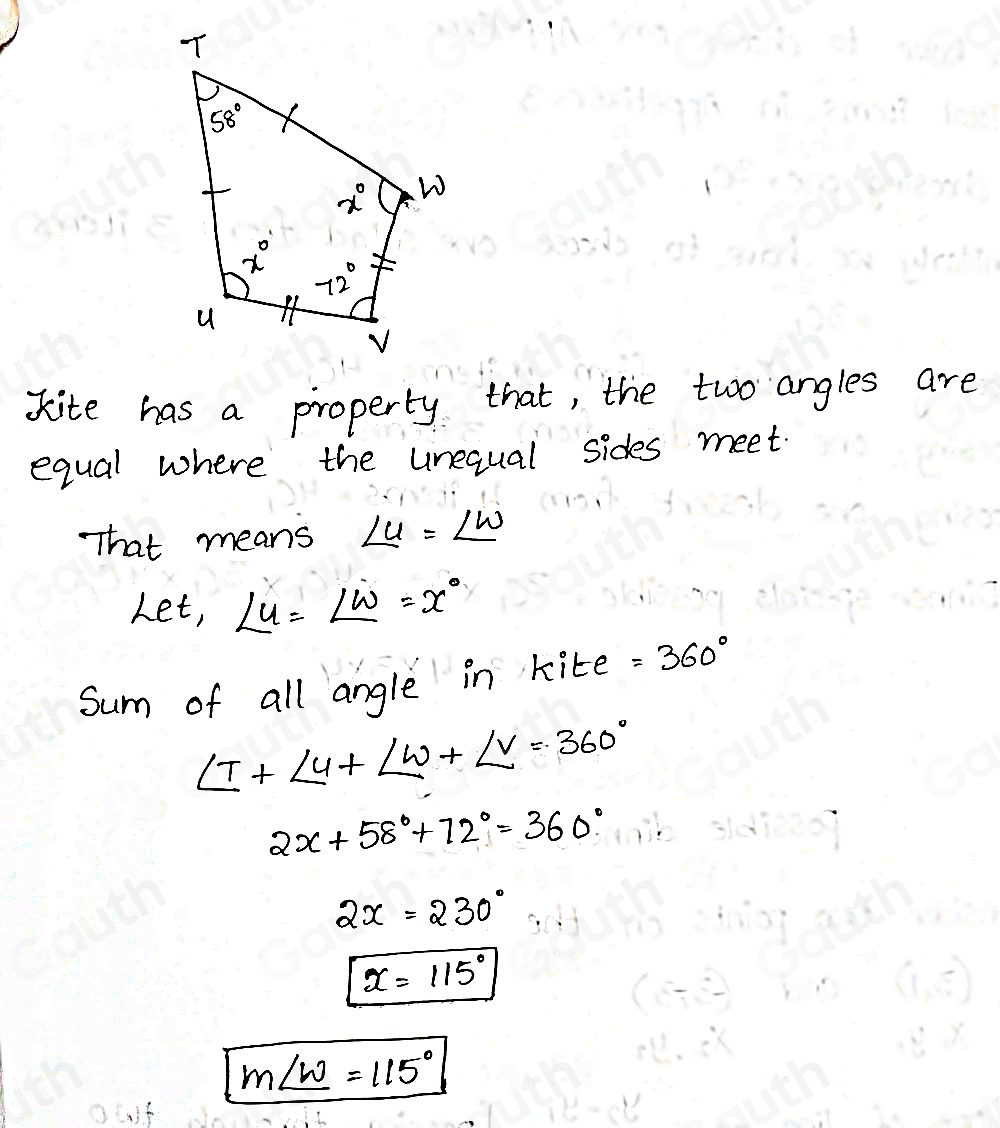 T
58°
x°
W
x°
72°
U
V
Kite has a property that, the two angles are
equal where the unequal sides meet.
That means ∠U = ∠W
Let, ∠U = ∠W = x°
Sum of all angle in kite = 360°
∠T + ∠U + ∠W + ∠V = 360°
2x + 58° + 72° = 360°
2x = 230°
x = 115°
m∠W = 115°
Gauth